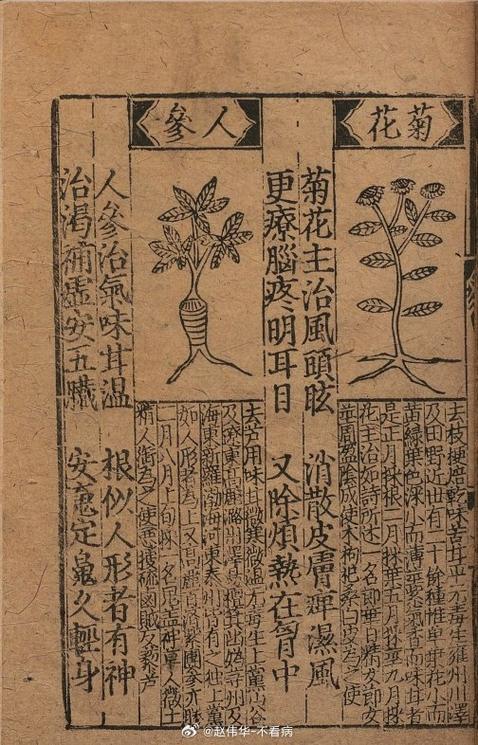 菊花
菊花主治風頭眩 消散皮膚痺濕風
更療腦疼明耳目 又除煩熱在胷中
去枝梗焙乾味苦甘平无毒生雍州川澤
及田野近世有二十餘種惟单葉花小而
黄緑葉色深小而薄氣香而味甘者
是正月採根三月採葉五月採莖九月採
花主治如詩所述一名即華日精女
莖周盈陰成使术枸杞桑白皮為之使
人參
人參治氣味甘温 根似人形者有神
治渴補虛安五臟 安䰟定魄久輕身
去芦用味甘微寒微温无毒生上黨山谷
及遼東潞州澤易檀州及
海東新羅渤海河東泰州皆有之独上黨
如人形者為上又高麗百濟紫團參亦勝
二月八月上旬採一名鬼盖神草人微土
精人銜為之使惡溲疏鹵鹹反藜芦
@赵伟华-不看病